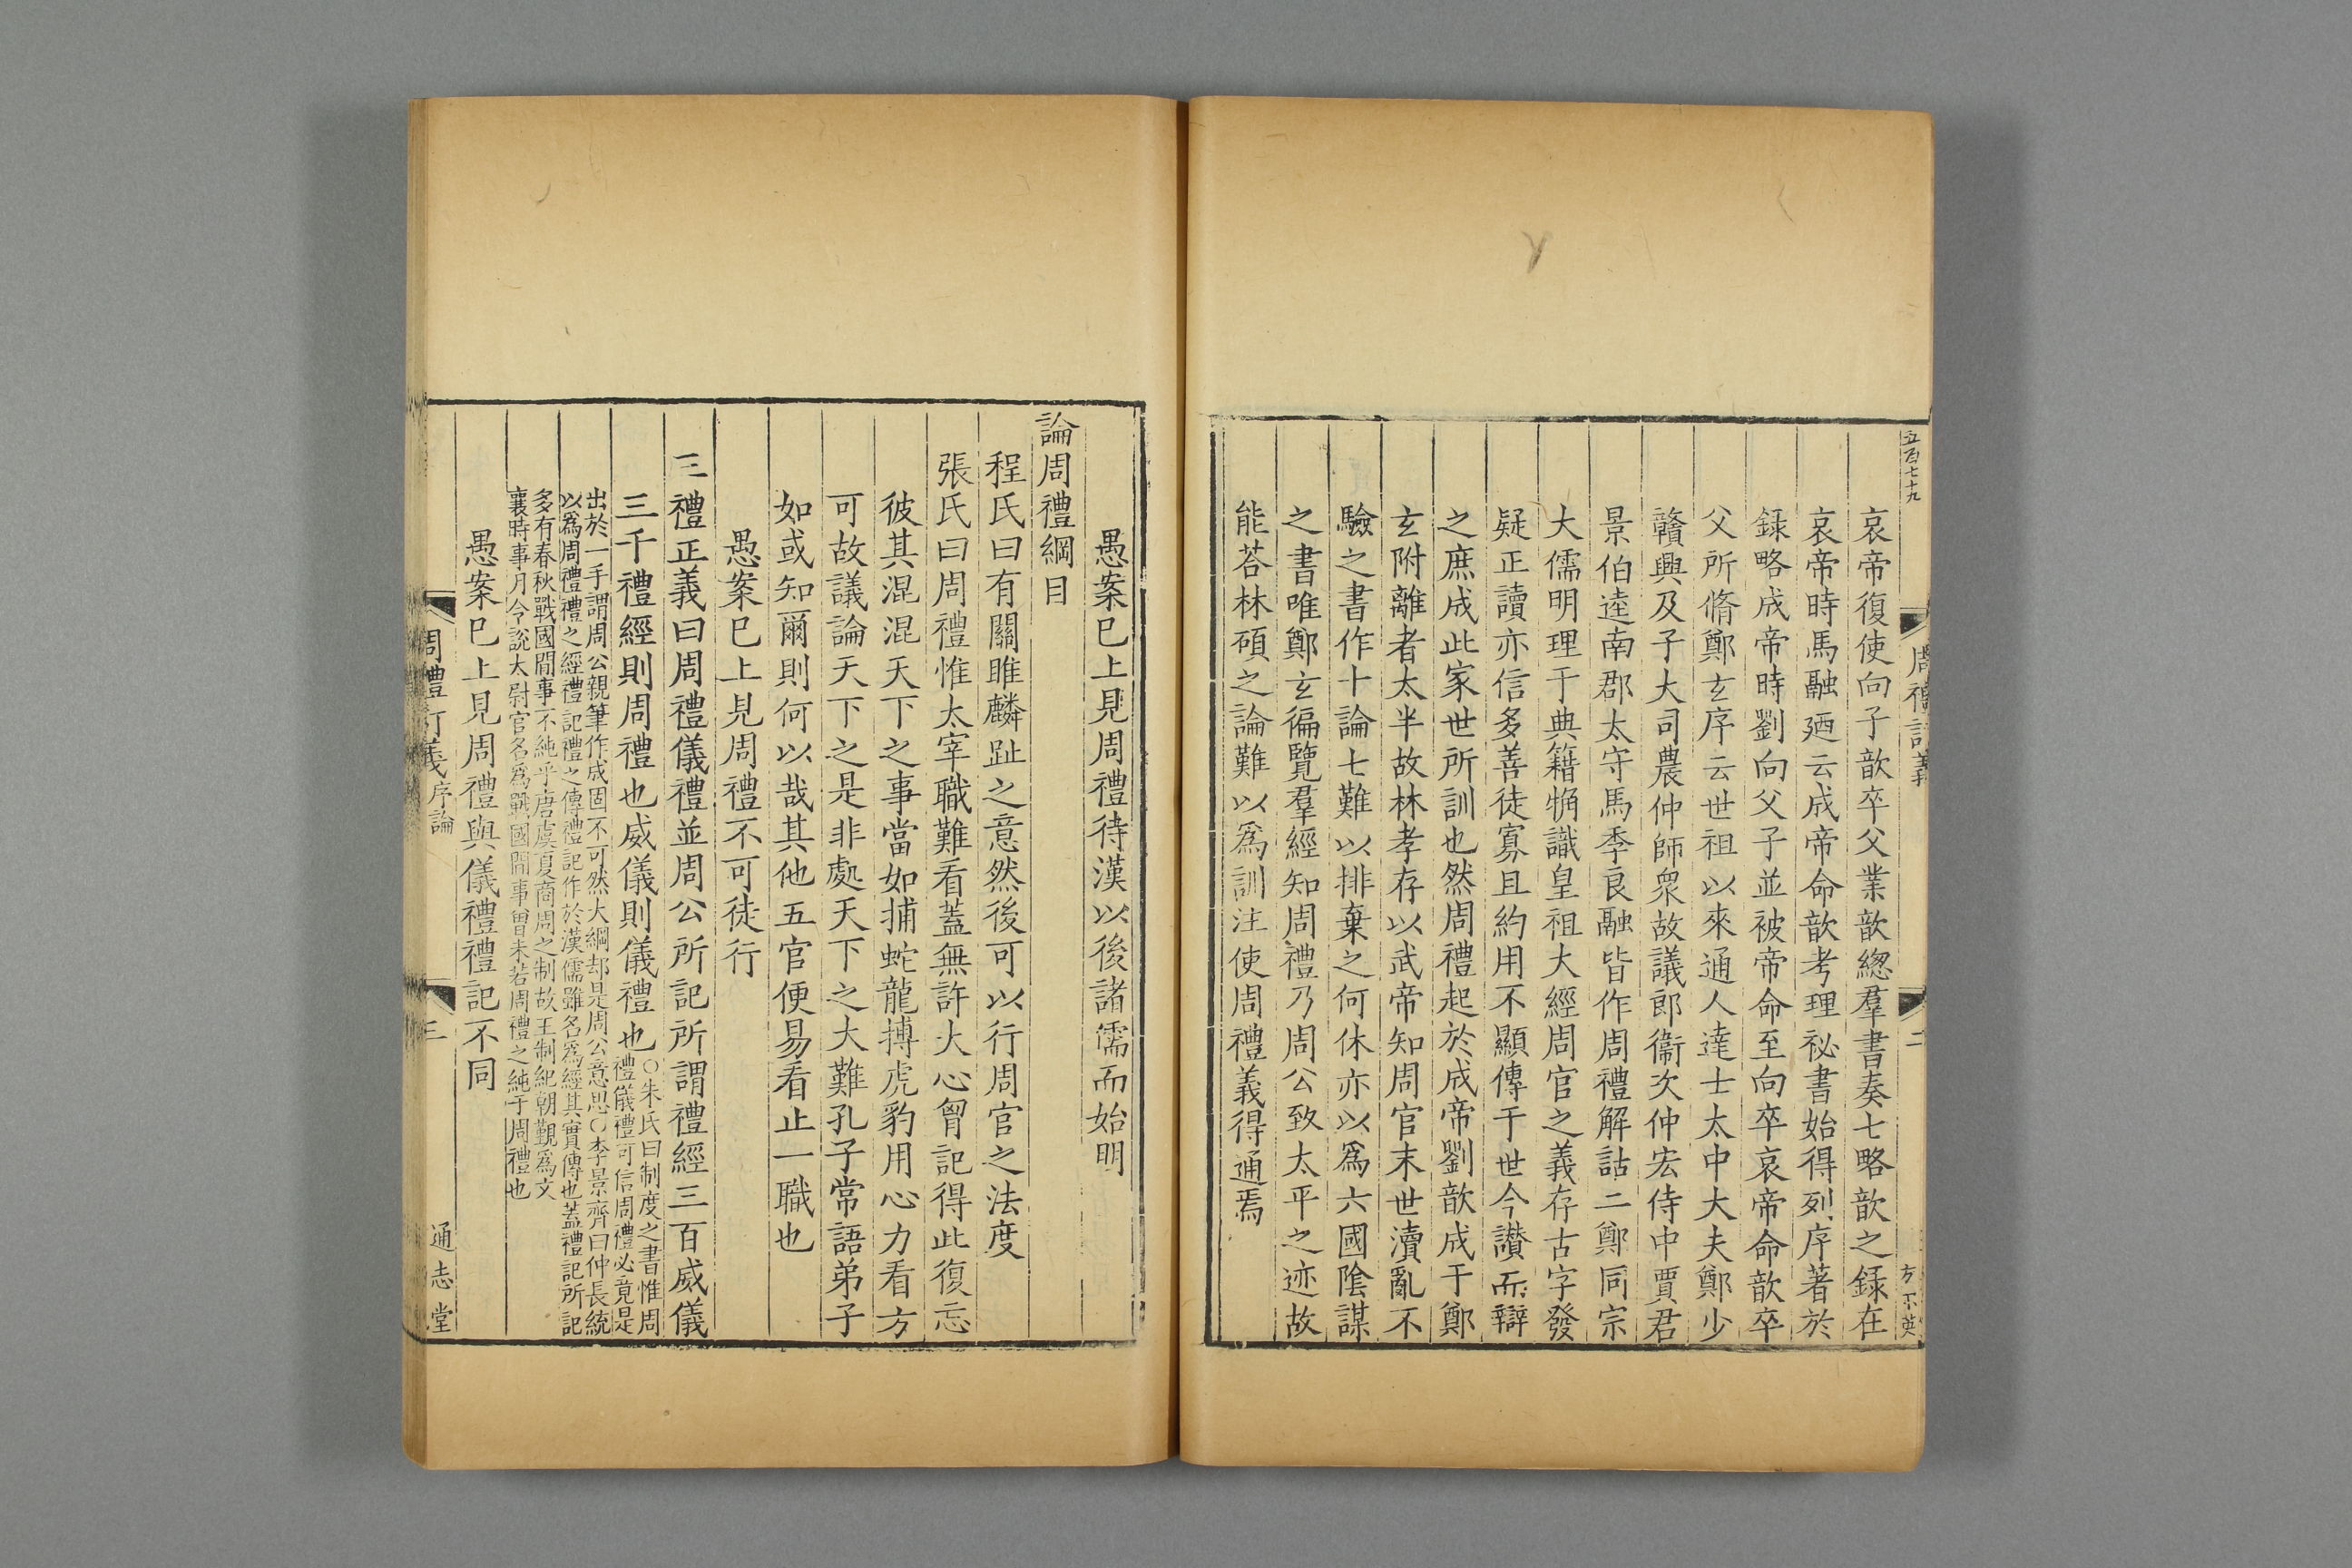 五百七十九
周禮訂義
二
哀帝復使向子歆卒父業歆緫羣書奏七略歆之録在
哀帝時馬融廼云成帝命歆考理祕書始得列序著於
録略成帝時劉向父子並被帝命至向卒哀帝命歆卒
父所脩鄭玄序云世祖以來通人達士太中大夫鄭少
贛興及子大司農仲師衆故議郎衞次仲宏侍中賈君
景伯逵南郡太守馬季良融皆作周禮解詁二鄭同宗
大儒明理于典籍觕識皇祖大經周官之義存古字發
疑正讀亦信多善徒寡且約用不顯傳于世今讃而辯
之庶成此家世所訓也然周禮起於成帝劉歆成于鄭
玄附離者太半故林孝存以武帝知周官末世瀆亂不
驗之書作十論七難以排棄之何休亦以爲六國隂謀
之書唯鄭玄徧覽羣經知周禮乃周公致太平之迹故
能荅林碩之論難以爲訓注使周禮義得通焉
愚案巳上見周禮待漢以後諸儒而始明
論周禮綱目
程氏曰有關雎麟趾之意然後可以行周官之法度
張氏曰周禮惟太宰職難看蓋無許大心胷記得此復忘
彼其混混天下之事當如捕蛇龍搏虎豹用心力看方
可故議論天下之是非處天下之大難孔子常語弟子
如或知爾則何以哉其他五官便易看止一職也
愚案巳上見周禮不可徒行
三禮正義曰周禮儀禮並周公所記所謂禮經三百威儀
三千禮經則周禮也威儀則儀禮也
○朱氏曰制度之書惟周
禮儀禮可信周禮必竟是
出於一手謂周公親筆作成固不可然大綱却是周公意思○李景齊曰仲長統
以爲周禮禮之經禮記禮之傳禮記作於漢儒雖名爲經其實傳也蓋禮記所記
多有春秋戰國間事不純乎唐虞夏商周之制故王制紀朝覲爲文
襄時事月令說太尉官名爲戰國間事曾未若周禮之純于周禮也
愚案巳上見周禮與儀禮禮記不同
周禮訂義序論
三
通志堂